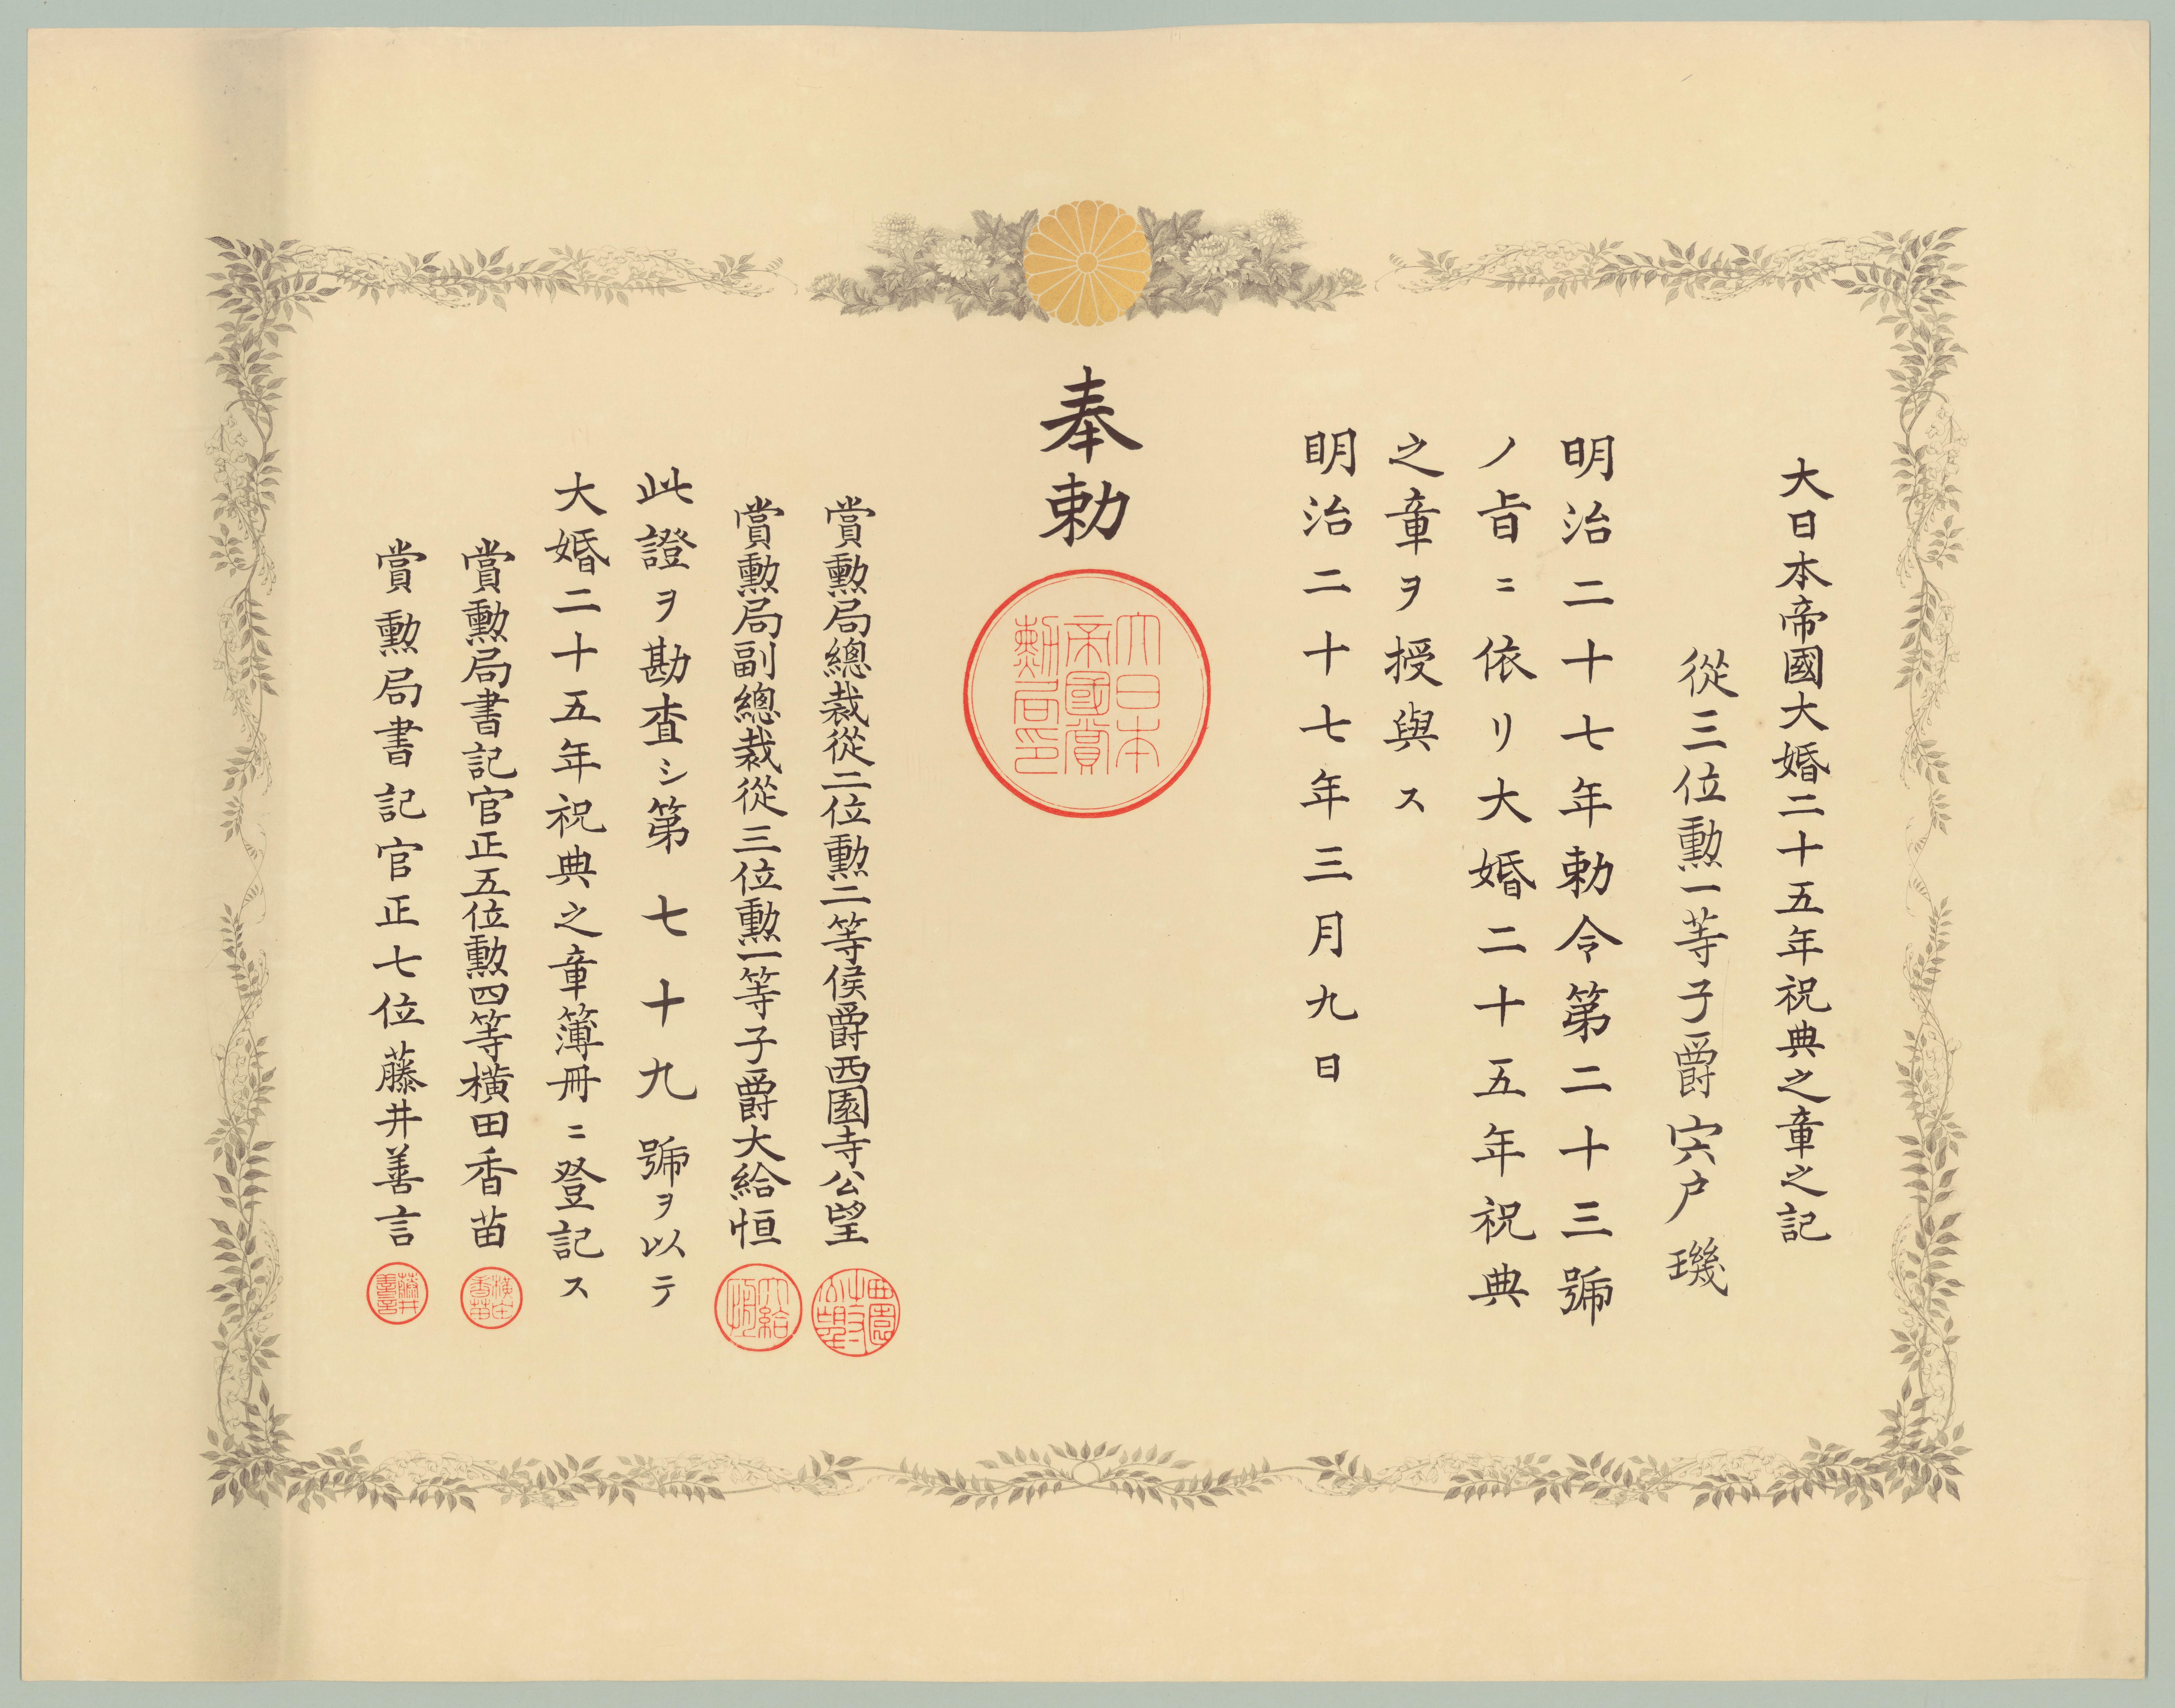 大日本帝國大婚二十五年祝典之章之記
從三位勲一等子爵宍戸璣
明治二十七年勅令第二十三號
ノ旨ニ依リ大婚二十五年祝典
之章ヲ授與ス
明治二十七年三月九日
奉勅
大日本
帝國賞
勲局印
賞勲局總裁從二位勲二等侯爵西園寺公望
賞勲局副總裁從三位勲一等子爵大給恒
此證ヲ勘査シ第七十九號ヲ以テ
大婚二十五年祝典之章簿冊ニ登記ス
賞勲局書記官正五位勲四等横田香苗
賞勲局書記官正七位藤井善言
西園寺公望
大給恒
横田香苗
藤井善言